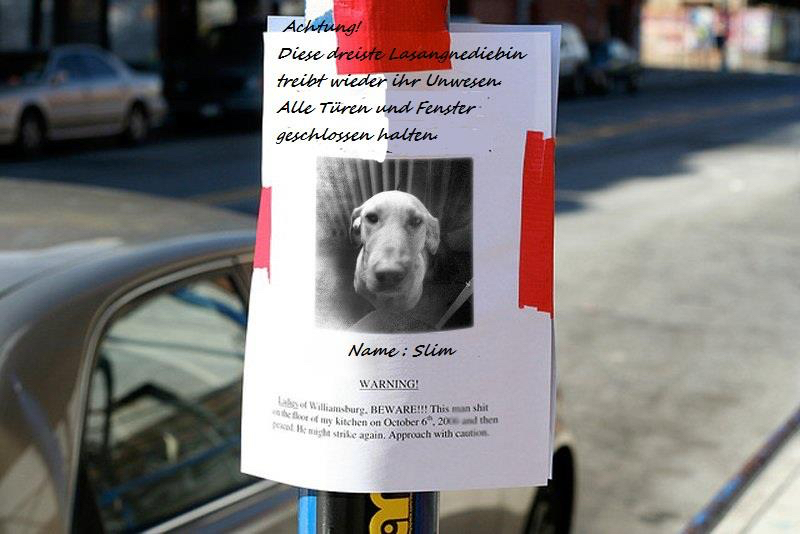 Achtung!
Diese dreiste Lasangnediebin
treibt wieder ihr Unwesen.
Alle Türen und Fenster
geschlossen halten.
Name : Slim
WARNING!
Ladies of Williamsburg, BEWARE!!! This man shit
on the floor of my kitchen on October 6th, 2006 and then
peaced. He might strike again. Approach with caution.